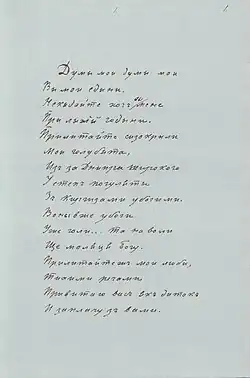 Думы мои думы мои
Вы мои едыни,
Некыдайте хочъ вы мене
При лыхій годыни.
Прилитайте сизокрили
Мои голубята,
Изъ за Днипра широкого
У степъ погуляти
Зъ Киргизами убогими.
Воны вже убоги
Уже голи... та на воли
Ще молятця богу.
Прилитайтежъ мои любы,
Тихими речами
Привитаю васъ якъ дитокъ
И заплачу зъ вами.